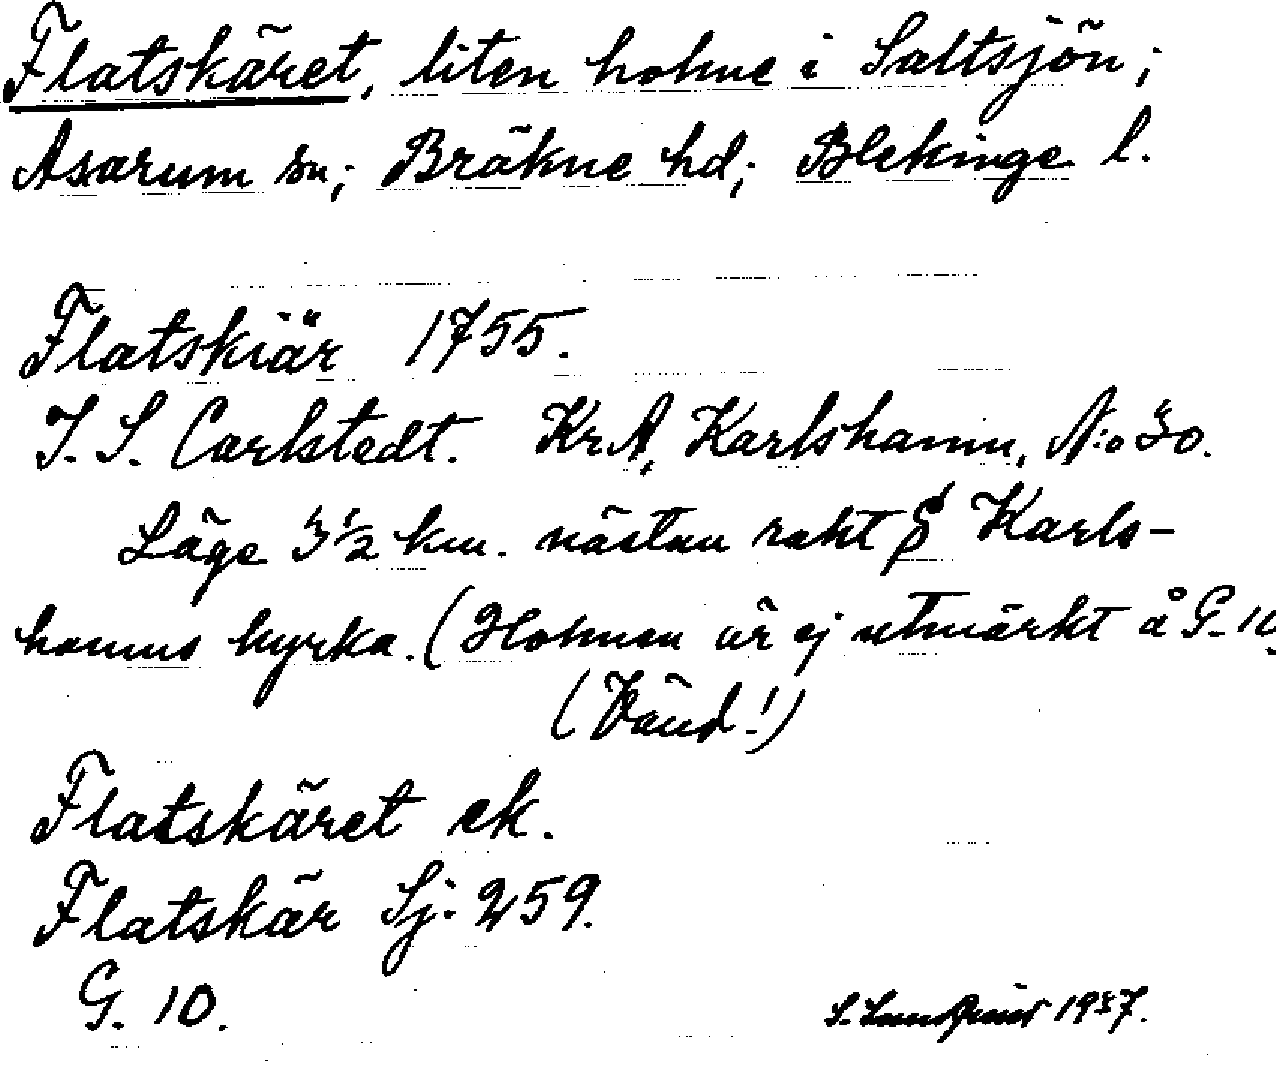 Flatskäret, liten holme i Saltsjön;
Asarum sn; Bräkne hd; Blekinge l.
Flatskiär 1755.
J. S. Carlstedt. KrA, Karlshamn, N:o 30.
Läge 3 1/2 km. nästan rakt S Karls-
hamns kyrka. (Holmen är ej utmärkt å G. 10.
(Vänd!)
Flatskäret ek.
Flatskär Sj. 259.
G. 10.
S. 1937.